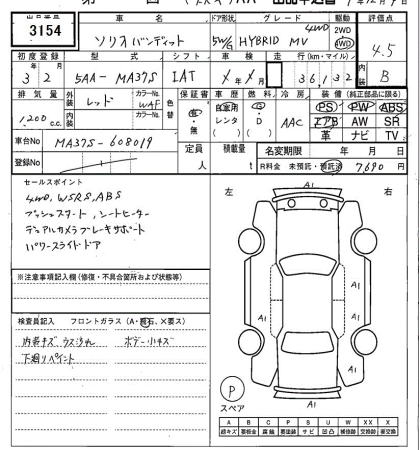 出品番号 車名 ドア形状 グレード 駆動 評価点
3154 ソリオバンディット 5W/G HYBRID MV 4WD 2WD 4WD 4.5
初度登録 型式 シフト 車検 走行(km・マイル) 内装
3年2月 5AA-MA37S IAT 36,132 B
排気量 外装 カラーNo. 色替 保証書 車歴 燃料 冷房 装備(純正部品に限る)
1,200c.c. レッド WAF 有・無 自家用 レンタ G・D AAC PS PW ABS
エアB AW SR
革 ナビ TV
車台No MA37S-608019
定員 人 積載量 t 名変期限 年 月 日
登録No R料金 未預託・預託済 7,690円
セールスポイント
4WD, WSRS, ABS
プッシュスタート、シートヒーター
デュアルカメラブレーキサポート
パワースライドドア
※注意事項記入欄(修復・不具合箇所および状態等)
検査員記入 フロントガラス(A・飛石、X要ス)
内装キズ ウスヨゴレ ボデー小キズ
下廻りペイント
左 右
A1
A1
A1
A1
A1
P
スペア
A B C P S U W X XX
線キズ 要板金 腐蝕 要塗装 サビ 凹凸 補修跡 要交換